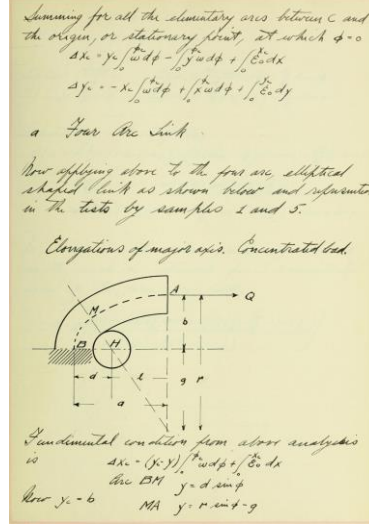 Summing for all the elementary arcs between C and
the origin, or stationary point, at which φ=0
Δxc = yc∫ωdφ - ∫yωdφ + ∫ε₀dx
Δyc = -xc∫ωdφ + ∫xωdφ + ∫ε₀dy
a Four Arc Link
Now applying above to the four arc, elliptical
shaped link as shown below and represented
in the tests by samples 1 and 5.
Elongations of major axis. Concentrated load.
A Q
M b
B H
d l g r
a
Fundimental condition from above analysis
is Δxc = (yc-y)∫ωdφ + ∫ε₀dx
Arc BM y = d sin φ
Now yc = b MA y = r sin φ - g